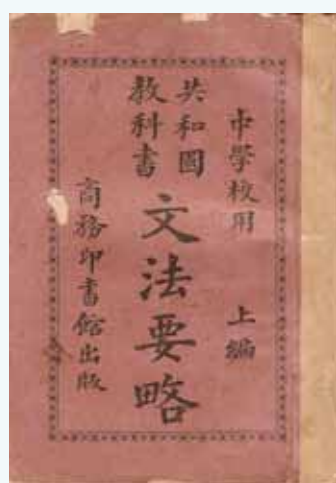 中學校用 上編
共和國
教科書
文法要略
商務印書館出版